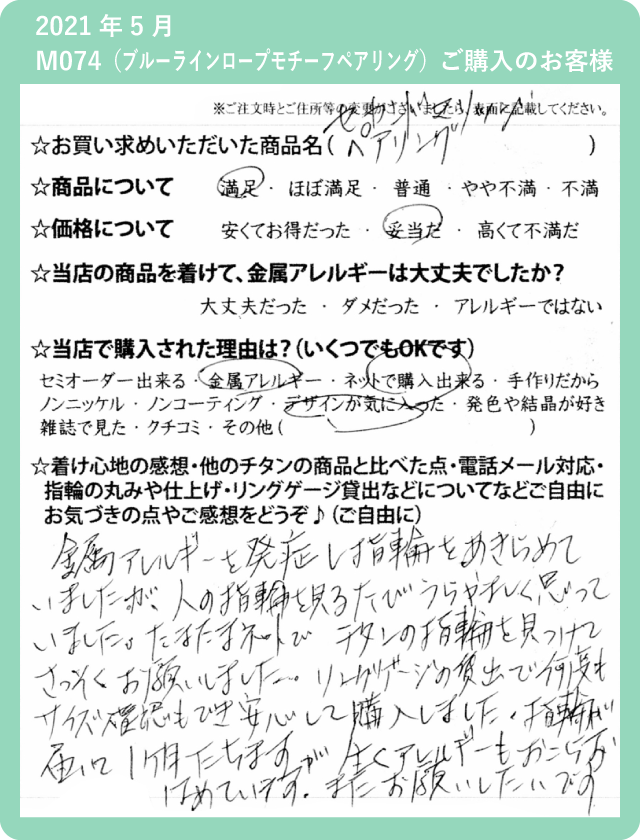 2021年5月
M074（ブルーラインロープモチーフペアリング）ご購入のお客様
※ご注文時とご住所等の変更がございましたら、表面に記載してください。
☆お買い求めいただいた商品名( ペアリング )
☆商品について 満足 ・ ほぼ満足 ・ 普通 ・ やや不満 ・ 不満
☆価格について 安くてお得だった ・ 妥当だ ・ 高くて不満だ
☆当店の商品を着けて、金属アレルギーは大丈夫でしたか？
大丈夫だった ・ ダメだった ・ アレルギーではない
☆当店で購入された理由は？（いくつでもOKです）
セミオーダー出来る ・ 金属アレルギー ・ ネットで購入出来る ・ 手作りだから
ノンニッケル ・ ノンコーティング ・ デザインが気に入った ・ 発色や結晶が好き
雑誌で見た ・ クチコミ ・ その他( )
☆着け心地の感想・他のチタンの商品と比べた点・電話メール対応・
指輪の丸みや仕上げ・リングゲージ貸出などについてなどご自由に
お気づきの点やご感想をどうぞ♪（ご自由に）
金属アレルギーを発症し指輪をあきらめて
いましたが、人の指輪を見るたびうらやましく思って
いました。たまたまネットで チタンの指輪を見つけて
さっそくお願いしました。リングゲージの貸出で何度も
サイズ確認もでき安心して購入しました。指輪が
届いて1ヶ月たちますが 全くアレルギーもおこらず
はめています。またお願いしたいです